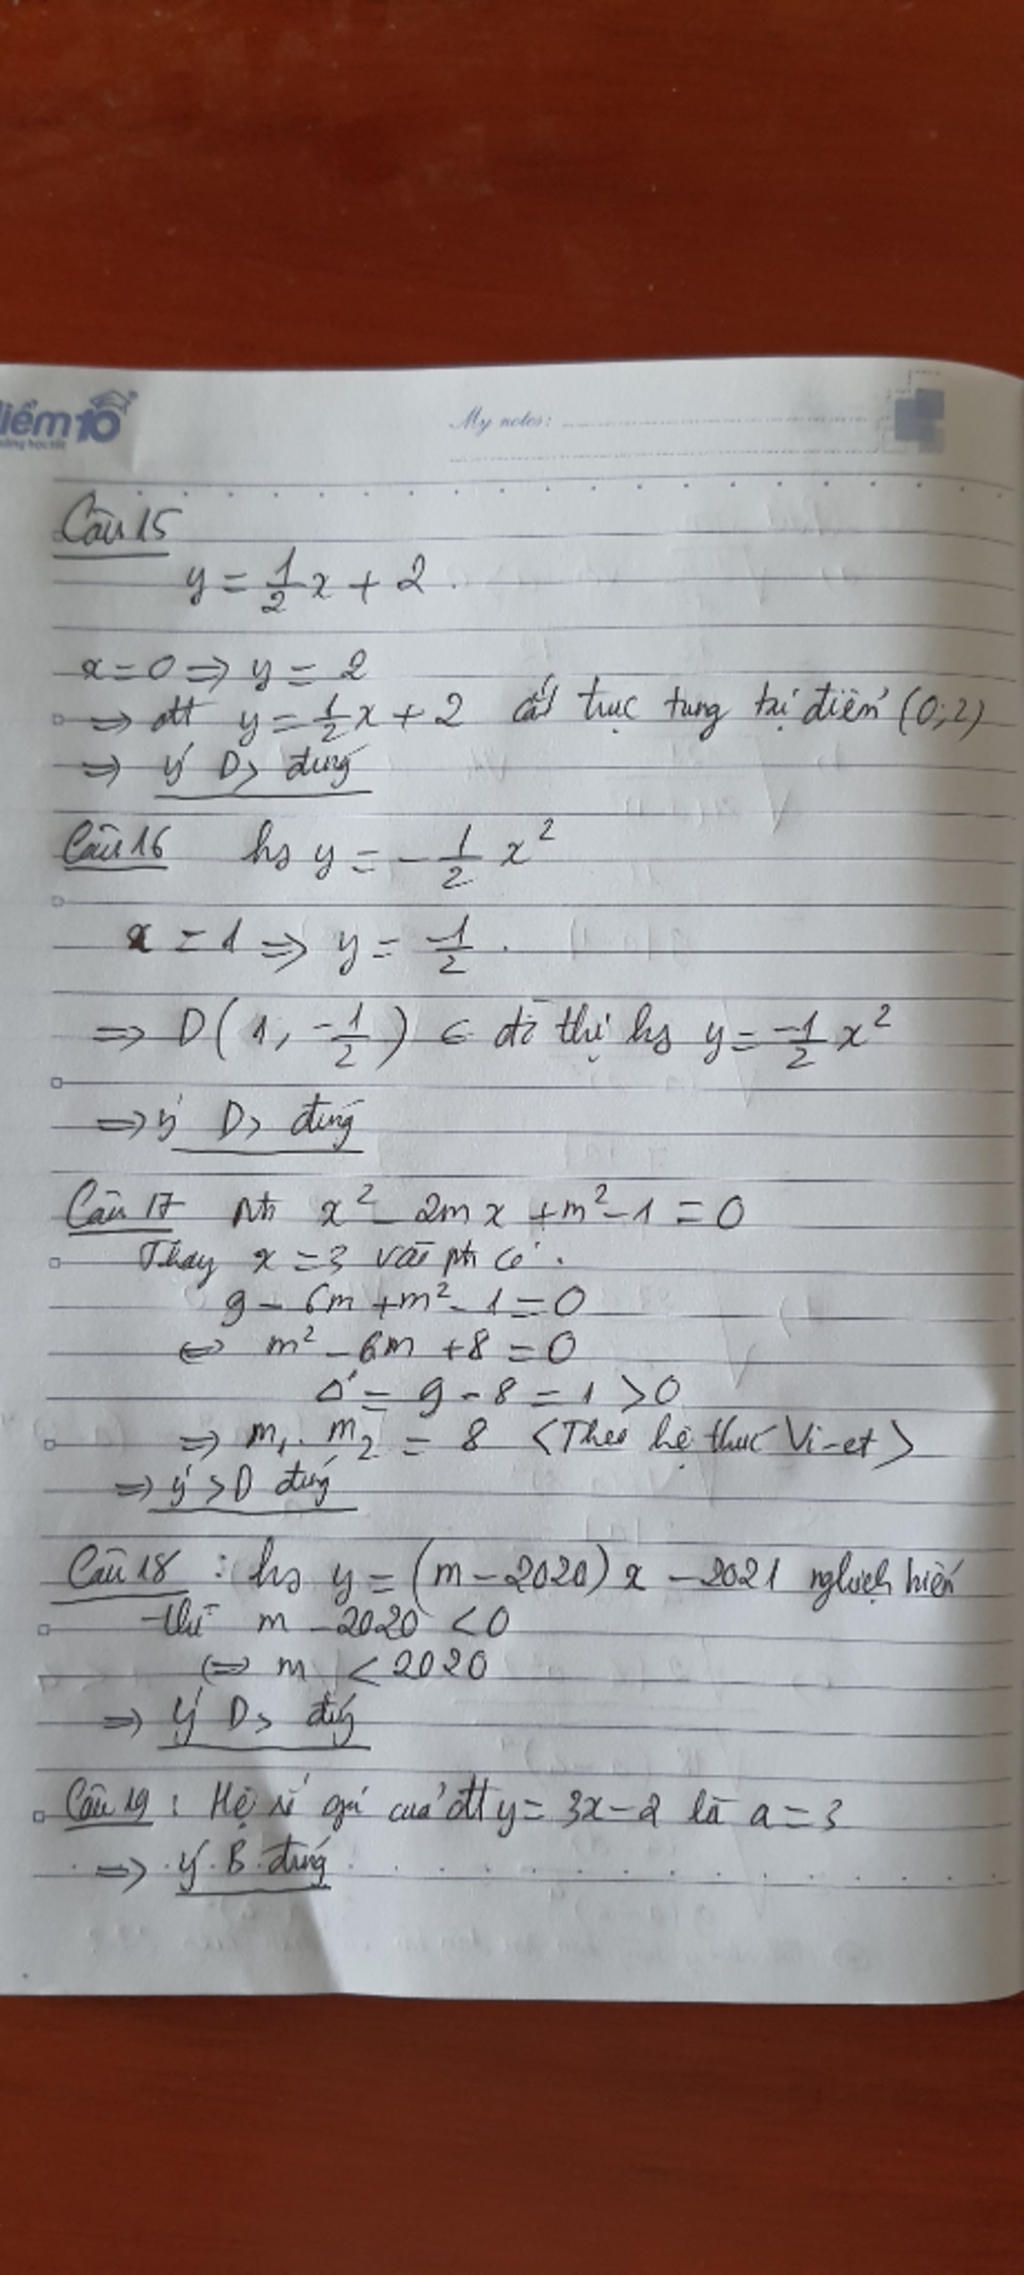 iểm10
My notes:
Câu 15
y = 1/2 x + 2.
x = 0 => y = 2
=> đtt y = 1/2 x + 2 cắt trục tung tại điểm (0;2)
=> ý D> đúng
Câu 16 hs y = -1/2 x²
x = 1 => y = -1/2.
=> D(1, -1/2) ∈ đồ thị hs y = -1/2 x²
=> ý D> đúng
Câu 17 pt x² - 2mx + m² - 1 = 0
Thay x = 3 vào pt có.
9 - 6m + m² - 1 = 0
<=> m² - 6m + 8 = 0
Δ' = 9 - 8 = 1 > 0
=> m₁. m₂ = 8 <Theo hệ thức Vi-et>
=> ý >D đúng
Câu 18 : hs y = (m - 2020) x - 2021 nghịch biến
thì m - 2020 < 0
<=> m < 2020
=> ý D> đúng
Câu 19 : Hệ số góc của đtt y = 3x - 2 là a = 3
=> ý B đúng